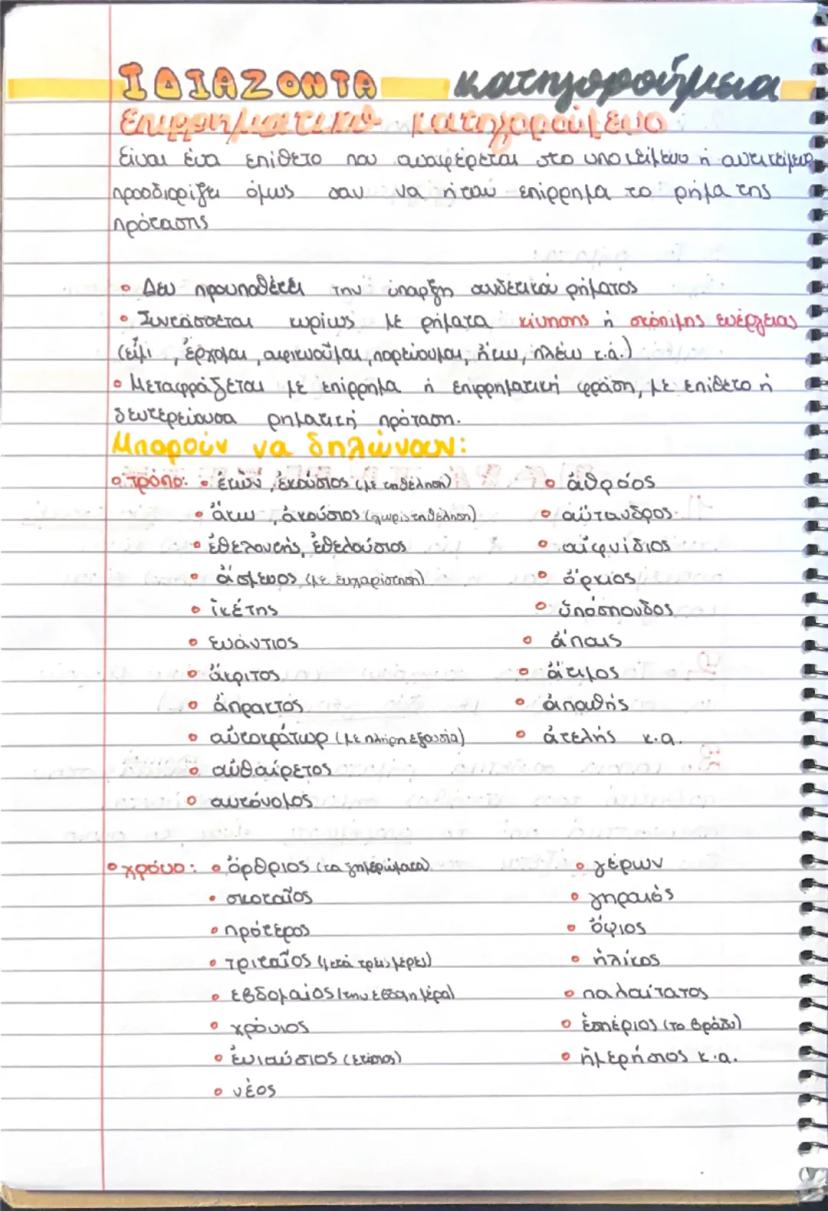 ΙΔΙΑΖΟΝΤΑ κατηγορούμενα
Επιρρηματικό κατηγορούμενο
Είναι ένα επίθετο που αναφέρεται στο υποκείμενο ή αντικείμενο
προσδιορίζει όμως σαν να ήταν επίρρημα το ρήμα της
πρότασης
• Δεν προυποθέτει την ύπαρξη συνδετικού ρήματος
• Συντάσσεται κυρίως με ρήματα κίνησης ή σκόπιμης ενέργειας
(εἶμι, ἔρχομαι, αφικνοῦμαι, πορεύομαι, ἥκω, πλέω κ.ά.)
• Μεταφράζεται με επίρρημα ή επιρρηματική φράση, με επίθετο ή
δευτερεύουσα ρηματική πρόταση.
Μπορούν να δηλώνουν:
• τρόπο: • ἑκών, ἑκούσιος (με τη θέληση) • ἀθρόος
• ἄκων, ἀκούσιος (χωρίς τη θέληση) • αὔτανδρος
• ἐθελοντής, ἐθελούσιος • αἰφνίδιος
• ἄσμενος (με ευχαρίστηση) • ὅρκιος
• ἱκέτης • ὑπόσπονδος
• ενάντιος • ἄπαις
• ἄκριτος • ἄτιμος
• ἄπρακτος • ἀπαθής
• αὐτοκράτωρ (με πλήρη εξουσία) • ἀτελής κ.α.
• αὐθαίρετος
• αυτόνομος
• χρόνο: • ὄρθριος (τα ξημερώματα) • γέρων
• σκοταῖος • γηραιός
• πρότερος • ὄψιος
• τριταῖος (μετά τρεις μέρες) • ἡλίκος
• εβδομαίος (την εβδομη μέρα) • παλαίτατος
• χρόνιος • ἑσπέριος (το βράδυ)
• ἐνιαύσιος (ετήσιος) • ἡμερήσιος κ.α.
• νέος